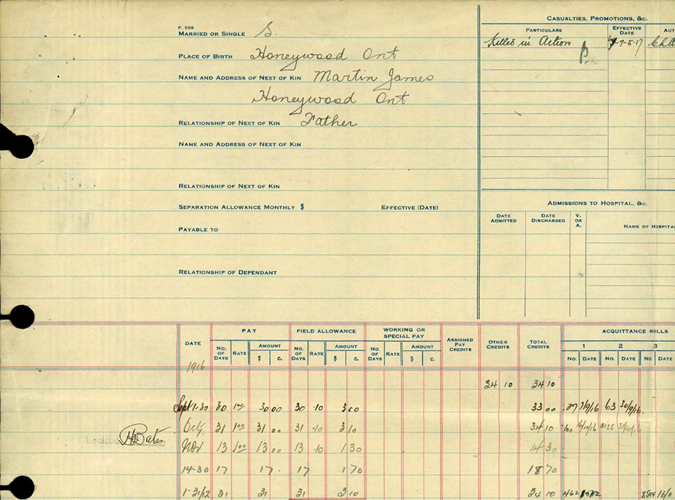 P. 559
MARRIED OR SINGLE S.
PLACE OF BIRTH Honeywood Ont
NAME AND ADDRESS OF NEXT OF KIN Martin James
Honeywood Ont
RELATIONSHIP OF NEXT OF KIN Father
NAME AND ADDRESS OF NEXT OF KIN
RELATIONSHIP OF NEXT OF KIN
SEPARATION ALLOWANCE MONTHLY $ EFFECTIVE (DATE)
PAYABLE TO
RELATIONSHIP OF DEPENDANT
CASUALTIES, PROMOTIONS, &C.
PARTICULARS EFFECTIVE DATE AUT
Killed in Action
ADMISSIONS TO HOSPITAL, &C.
DATE ADMITTED DATE DISCHARGED V. OR A. NAME OF HOSPITA
DATE PAY FIELD ALLOWANCE WORKING OR SPECIAL PAY ASSIGNED PAY CREDITS OTHER CREDITS TOTAL CREDITS ACQUITTANCE ROLLS
NO. OF DAYS RATE AMOUNT NO. OF DAYS RATE AMOUNT NO. OF DAYS RATE AMOUNT 1 2 3
$ C. $ C. $ C. NO. DATE NO. DATE NO. DATE
1916
24 10 24 10
Sept 1-30 30 1.00 30 00 30 10 3 00 33 00 63
Oct 31 1.00 31 00 31 10 3 10 34 10
Nov 13 1.00 13 00 13 10 1 30 14 30
14-30 17 17 17 1 70 18 70
31 31 31 3 10 34 10